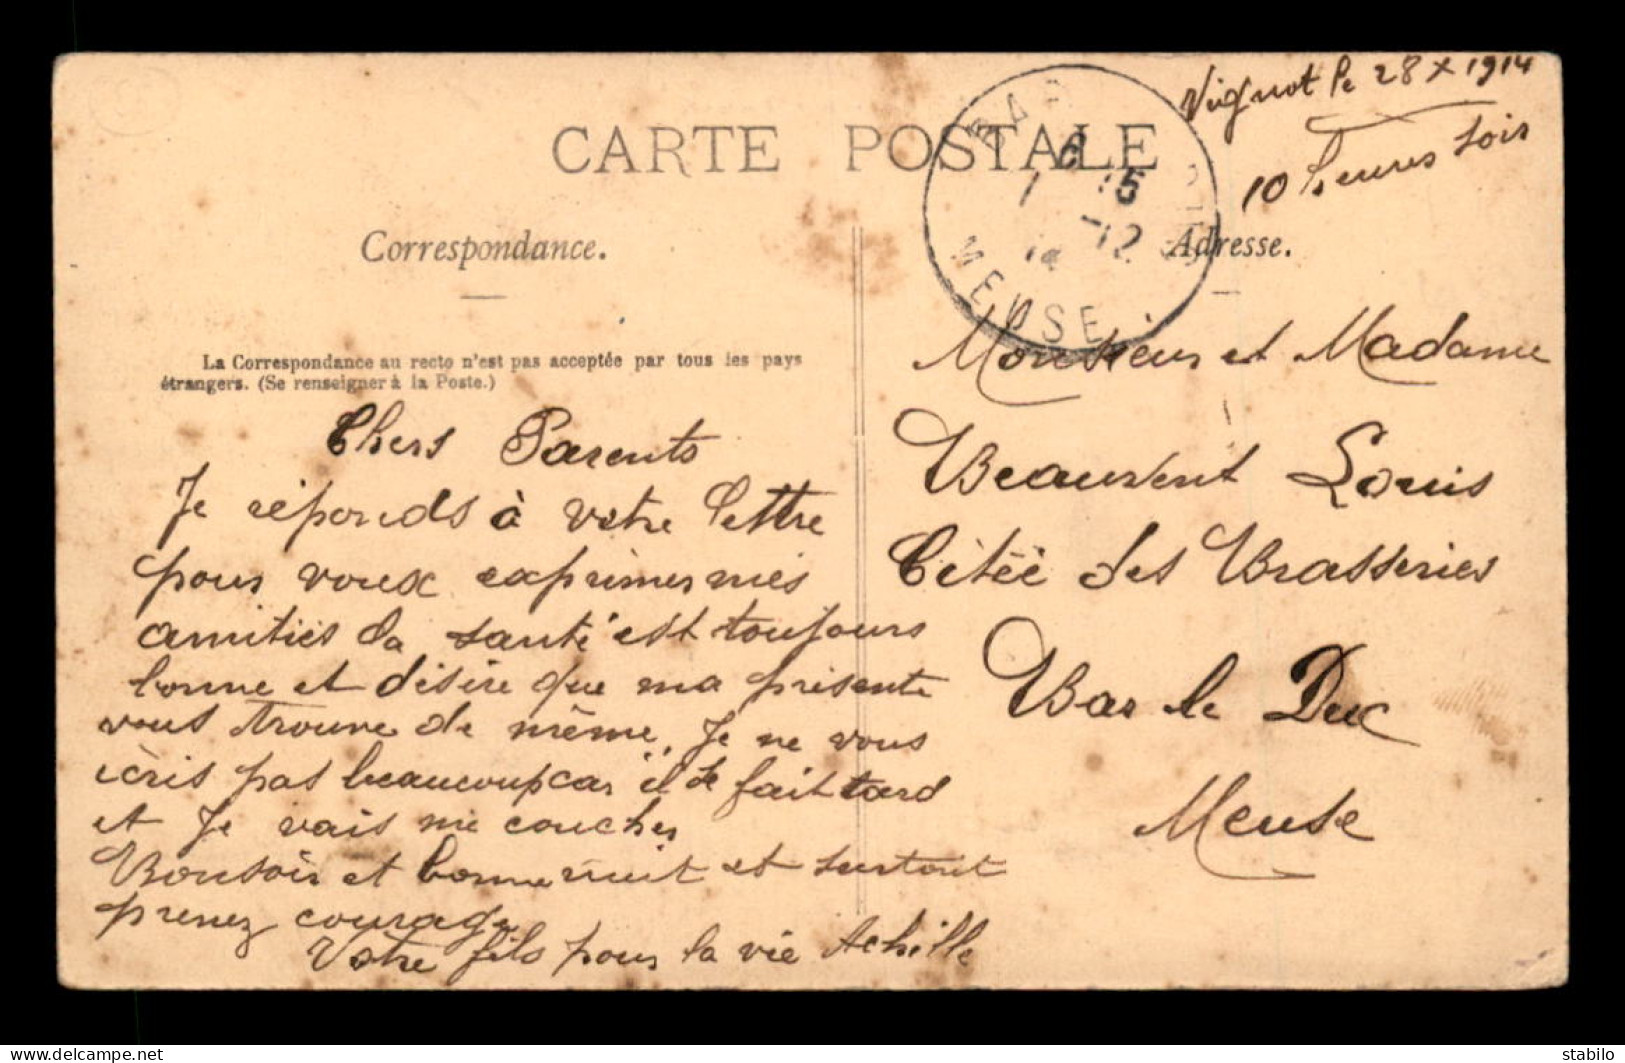 Vignot le 28 X 1914
10 heures soir
CARTE POSTALE
BAR
6 15
1 -12
14
MEUSE
Correspondance.
Adresse.
La Correspondance au recto n'est pas acceptée par tous les pays
étrangers. (Se renseigner à la Poste.)
Chers Parents
Je réponds à votre lettre
pour voux exprimer mes
amitiés La santé est toujours
bonne et désire que ma présente
vous trouve de même. Je ne vous
écris pas beaucoup car il se fait tard
et Je vais me coucher
Bonsoir et bonne nuit et surtout
prenez courage
Votre fils pour la vie Achille
Monsieur et Madame
Beauvent Louis
Citéé des Brasseries
Bar le Duc
Meuse
delcampe.net
stabilo